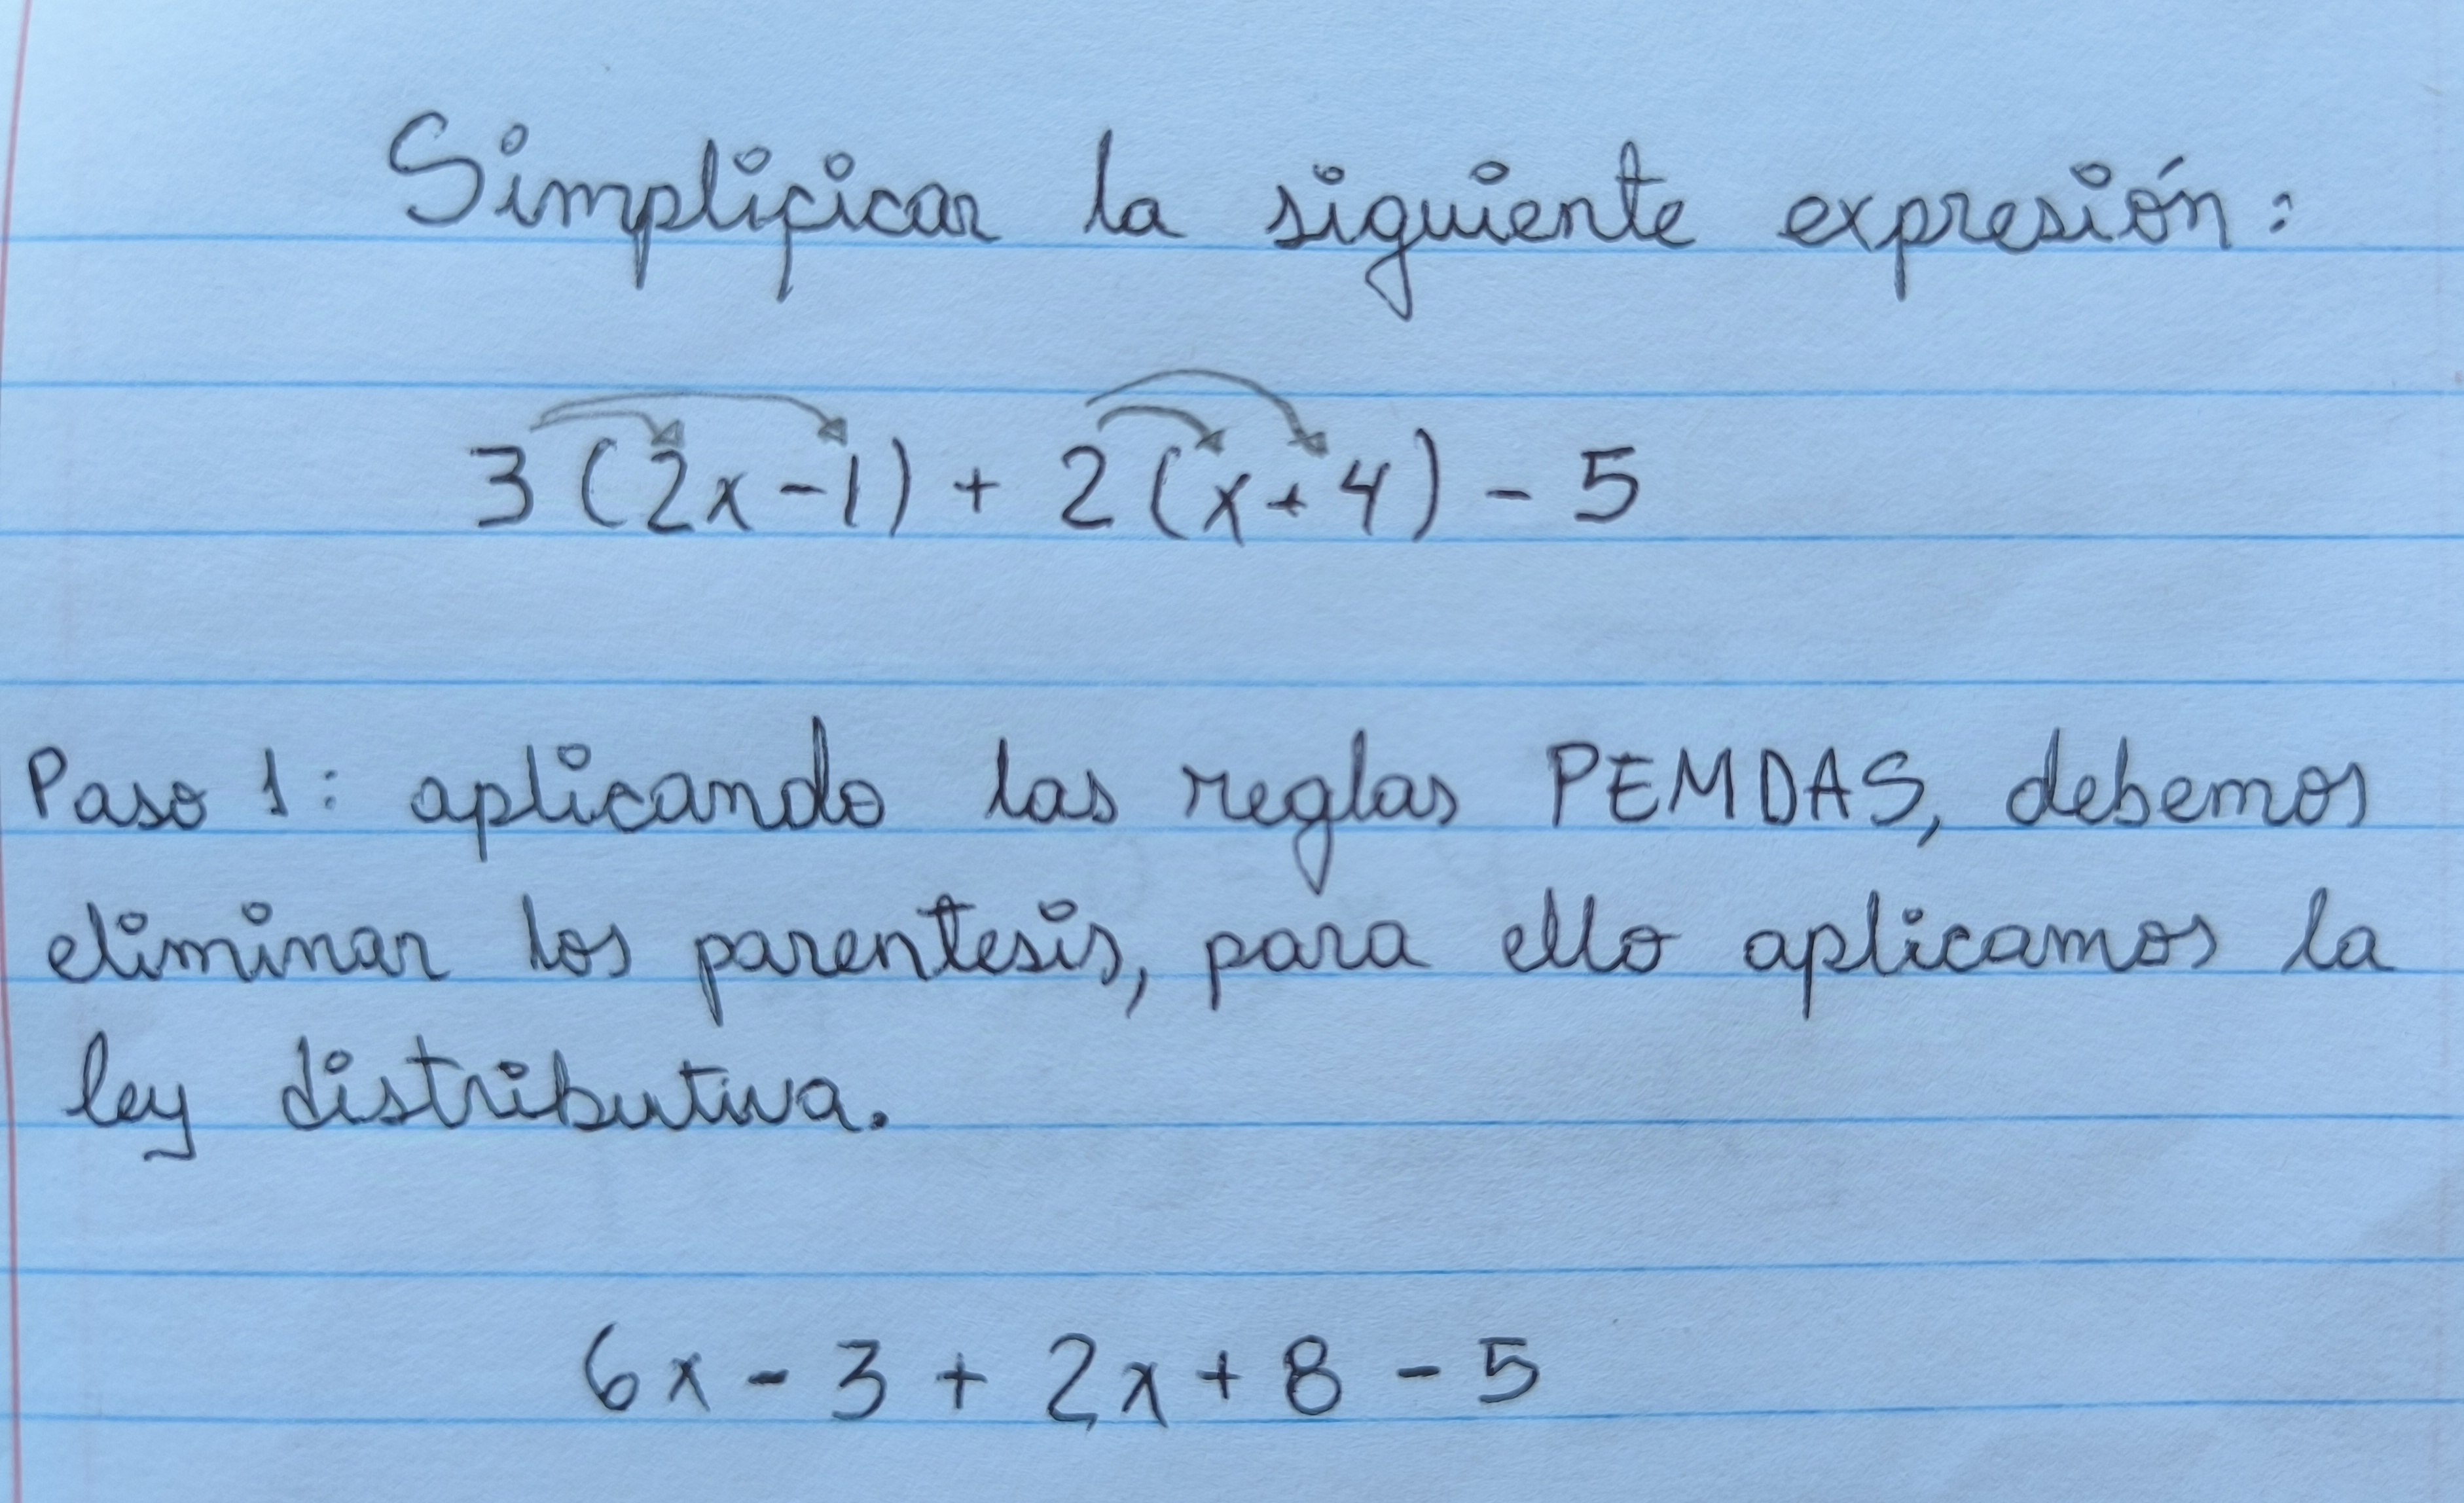 Simplificar la siguiente expresión:
3(2x-1) + 2(x+4) - 5
Paso 1: aplicando las reglas PEMDAS, debemos
eliminar los parentesis, para ello aplicamos la
ley distributiva.
6x - 3 + 2x + 8 - 5